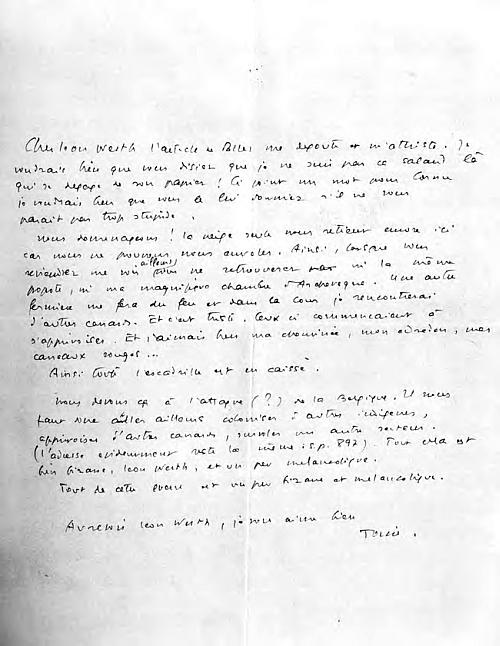 Cher Leon Werth l'article de me degoute et m'attriste. Je
voudrais bien que vous disiez que je ne suis pas ce salaud là
qui se degage de son papier ! Ci joint un mot pour
je voudrais bien que vous le lui donniez s'il ne vous
parait pas trop stupide.
Nous demenageons ! la neige seule nous retient encore ici
car nous ne pouvons nous envoler. Ainsi, lorsque vous
reviendrez me voir ailleurs vous ne retrouverez ni la même
popote, ni ma magnifique chambre d' Une autre
fermière me fera du feu et dans la cour je rencontrerai
d'autres canards. Et c'est triste. Ceux ci commencaient à
s'apprivoiser. Et j'aimais bien ma cheminée, mon edredon, mes
carreaux rouges...
Ainsi toute l'escadrille est en caisse.
Nous devons ça à l'attaque (?) de la Belgique. Il nous
faut donc aller ailleurs coloniser d'autres indigenes,
apprivoiser d'autres canards, survoler un autre secteur.
(l'adresse evidemment reste la même : s.p. 897). Tout cela est
bien bizarre, Leon Werth, et un peu melancolique.
Tout de cette guerre est un peu bizarre et melancolique.
Au revoir Leon Werth, je vous aime bien
Tonio.